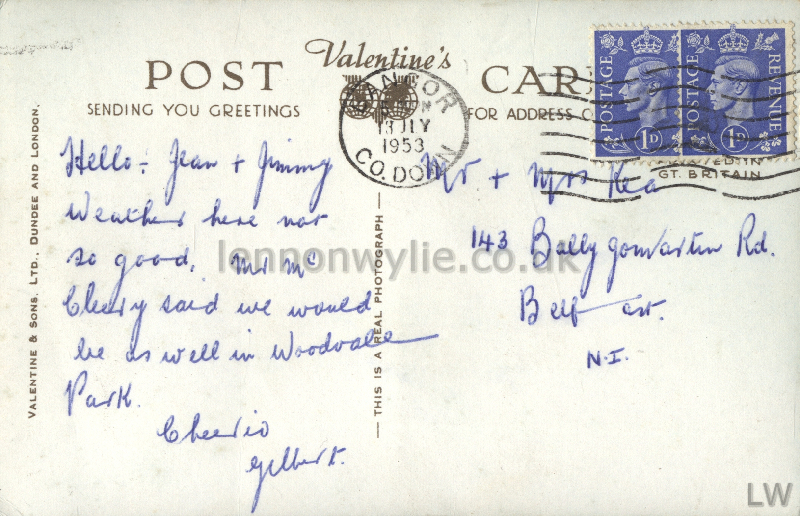 Valentine's
POST CARD
SENDING YOU GREETINGS
FOR ADDRESS
BANGOR
13 JLY
1953
CO. DOWN
POSTAGE REVENUE
1D
POSTAGE REVENUE
1D
PRINTED IN
GT. BRITAIN
VALENTINE & SONS. LTD., DUNDEE AND LONDON.
THIS IS A REAL PHOTOGRAPH
Hello - Jean + Jimmy
Weather here not
so good. Mr Mc
Cleery said we would
be as well in Woodvale
Park.
Cheerio
Gilbert.
Mr + Mrs Rea
143 Ballygomartin Rd.
Belfast.
N.I.
lennonwylie.co.uk
LW